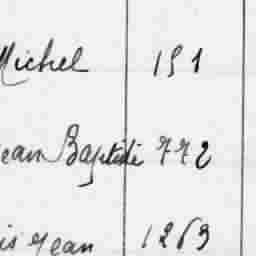 Michel 151
ean Baptiste 772
is Jean 1263